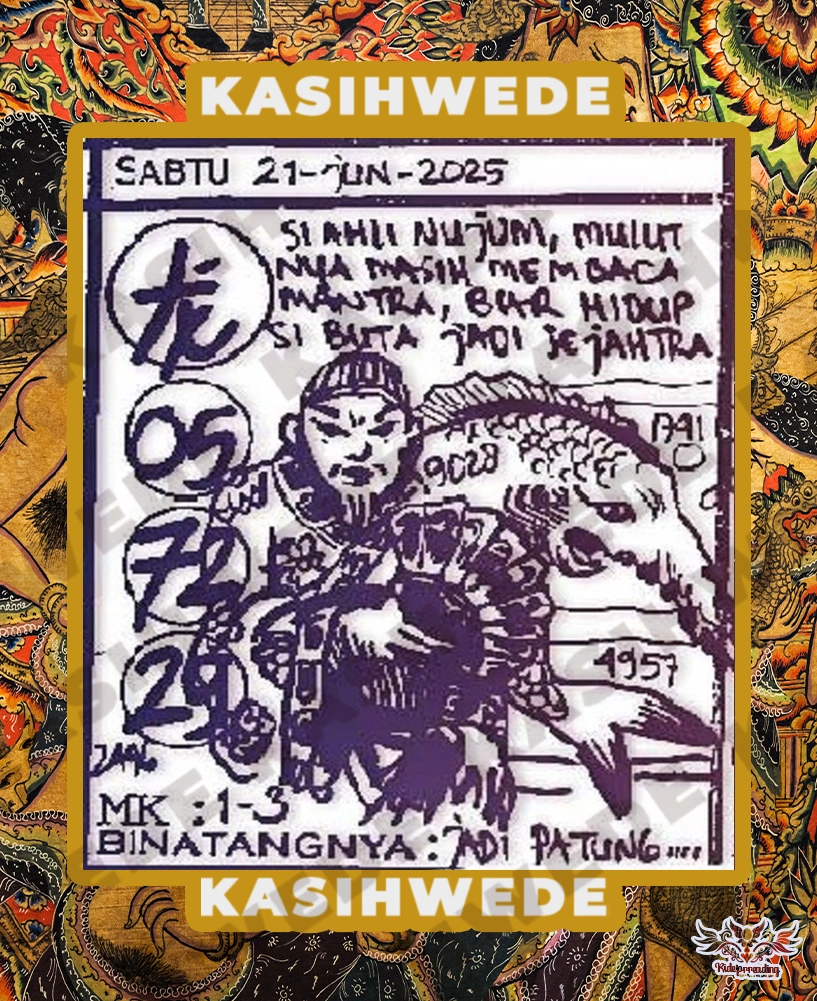 KASIHWEDE
SABTU 21-jUN-2025
SI AHLI NUjUM, MULUT
NYA MASIH MEMBACA
MANTRA, BIAR HIDUP
SI BUTA jADI SEjAHTRA
05
9028
72
4957
29
MK : 1-3
BINATANGNYA : jADI PATUNG....
KASIHWEDE